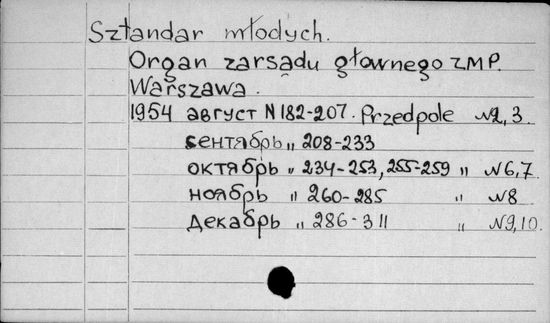 Sztandar młodych.
Organ zarsądu głownego Z.M.P.
Warszawa.
1954 август N 182-207. Przedpole N2,3.
сентябрь „ 208-233
октябрь „ 234-253, 255-259 „ N6,7.
ноябрь „ 260-285 „ N8
декабрь „ 286-311 „ N9,10.